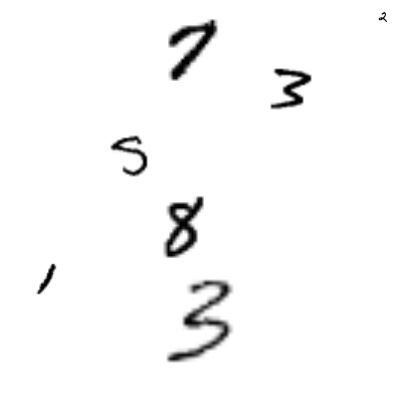 2
7
3
5
8
1
3